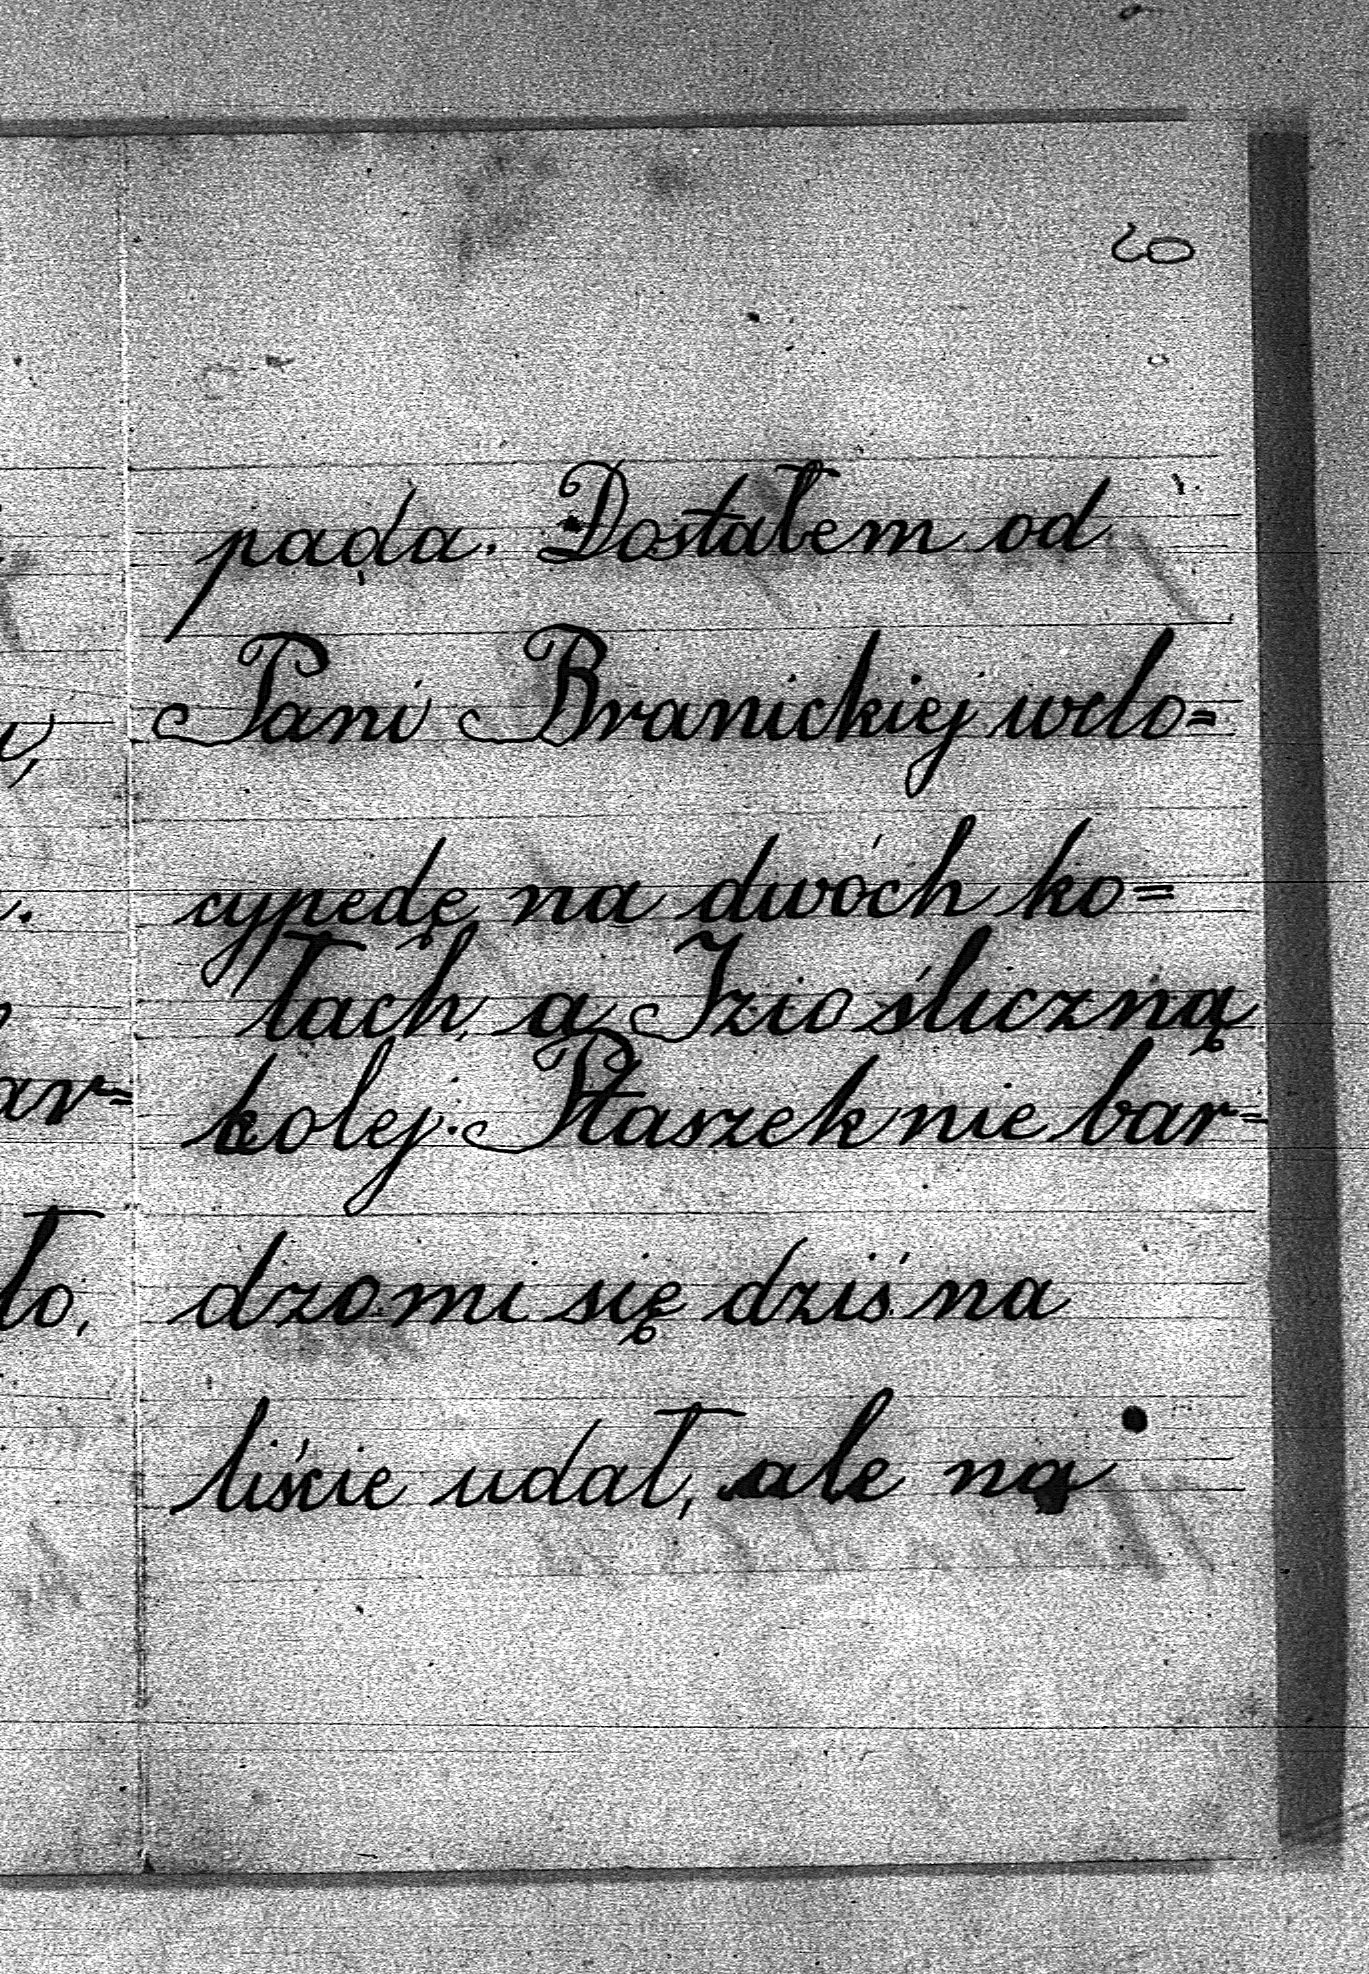 20
pada. Dostałem od
Pani Branickiej welo=
cypedę na dwóch ko=
łach, a Izio śliczną
kolej. Ptaszek nie bar=
dzo mi się dziś na
liście udał, ale na